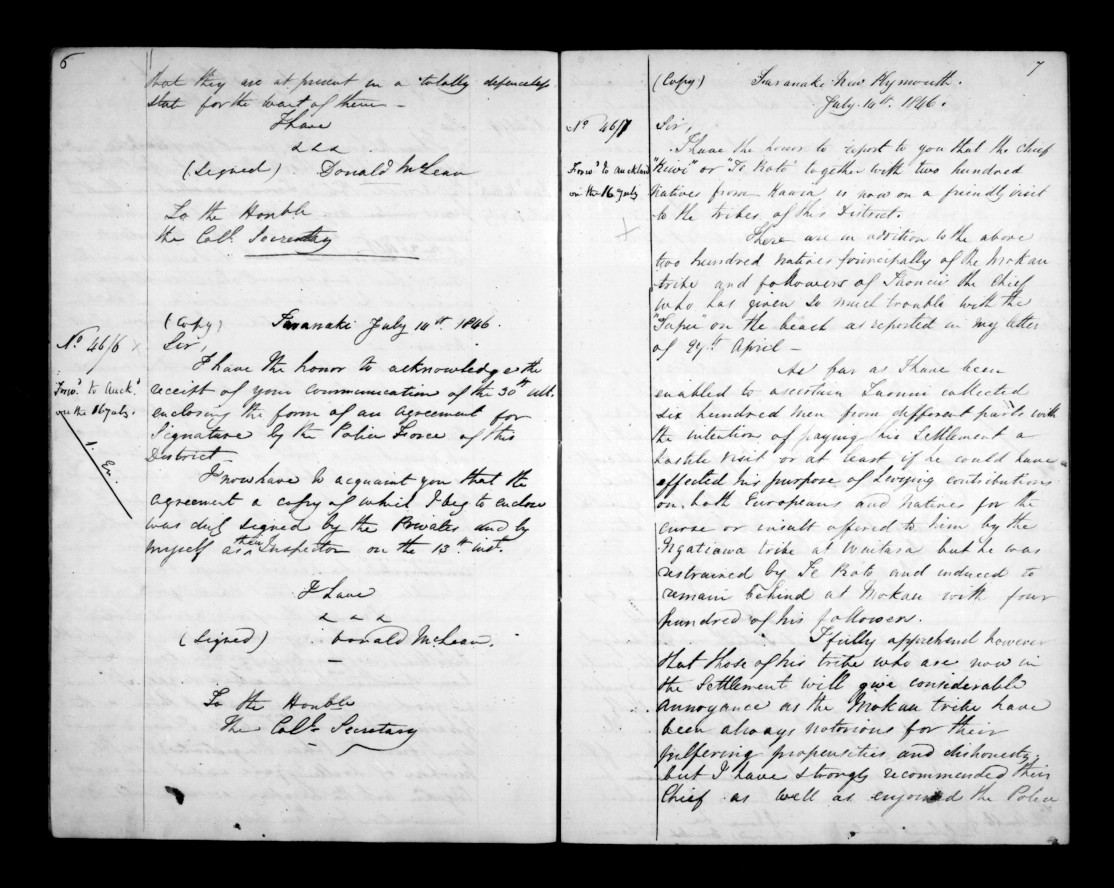 6
that they are at present in a totally defenceless
state for the want of them —
I have
& & &
(Signed) Donald McLean
To the Honble
the Coll. Secretary
(Copy) Taranaki July 14th 1846.
No 46/6 x
Sir,
I have the honor to acknowledge the
Forwd to Auckd
on the 16 July.
receipt of your communication of the 30th ult.
enclosing the form of an agreement for
Signature by the Police Force of this
District
1 En.
I now have to acquaint you that the
agreement a copy of which I beg to enclose
was duly signed by the Privates and by
myself as their Inspector on the 13th inst.
I have
& & &
(Signed) Donald McLean.
To the Honble
The Coll. Secretary
7
(Copy) Taranaki New Plymouth.
July 14th 1846.
No 46/7
Sir,
I have the honor to report to you that the chief
Forwd to Auckland
on the 16 July
x
"Kiwi" or Te Roto together with two hundred
natives from Kawia is now on a friendly visit
to the tribes of this District.
There are in addition to the above
two hundred natives principally of the Mokau
tribe and followers of Taonui the Chief
who has given so much trouble with the
"Tapu" on the beach as reported in my letter
of 27th April —
As far as I have been
enabled to ascertain Taonui collected
six hundred men from different parts with
the intention of paying this Settlement a
hostile visit or at least if he could have
effected his purpose of Levying contributions
on both Europeans and natives for the
curse or insult offered to him by the
Ngatiawa tribe at Waitara but he was
restrained by Te Roto and induced to
remain behind at Mokau with four
hundred of his followers.
I fully apprehend however
that those of his tribe who are now in
the Settlement will give considerable
annoyance as the Mokau tribe have
been always notorious for their
pilfering propensities and dishonesty,
but I have strongly recommended their
Chief as well as enjoined the Police